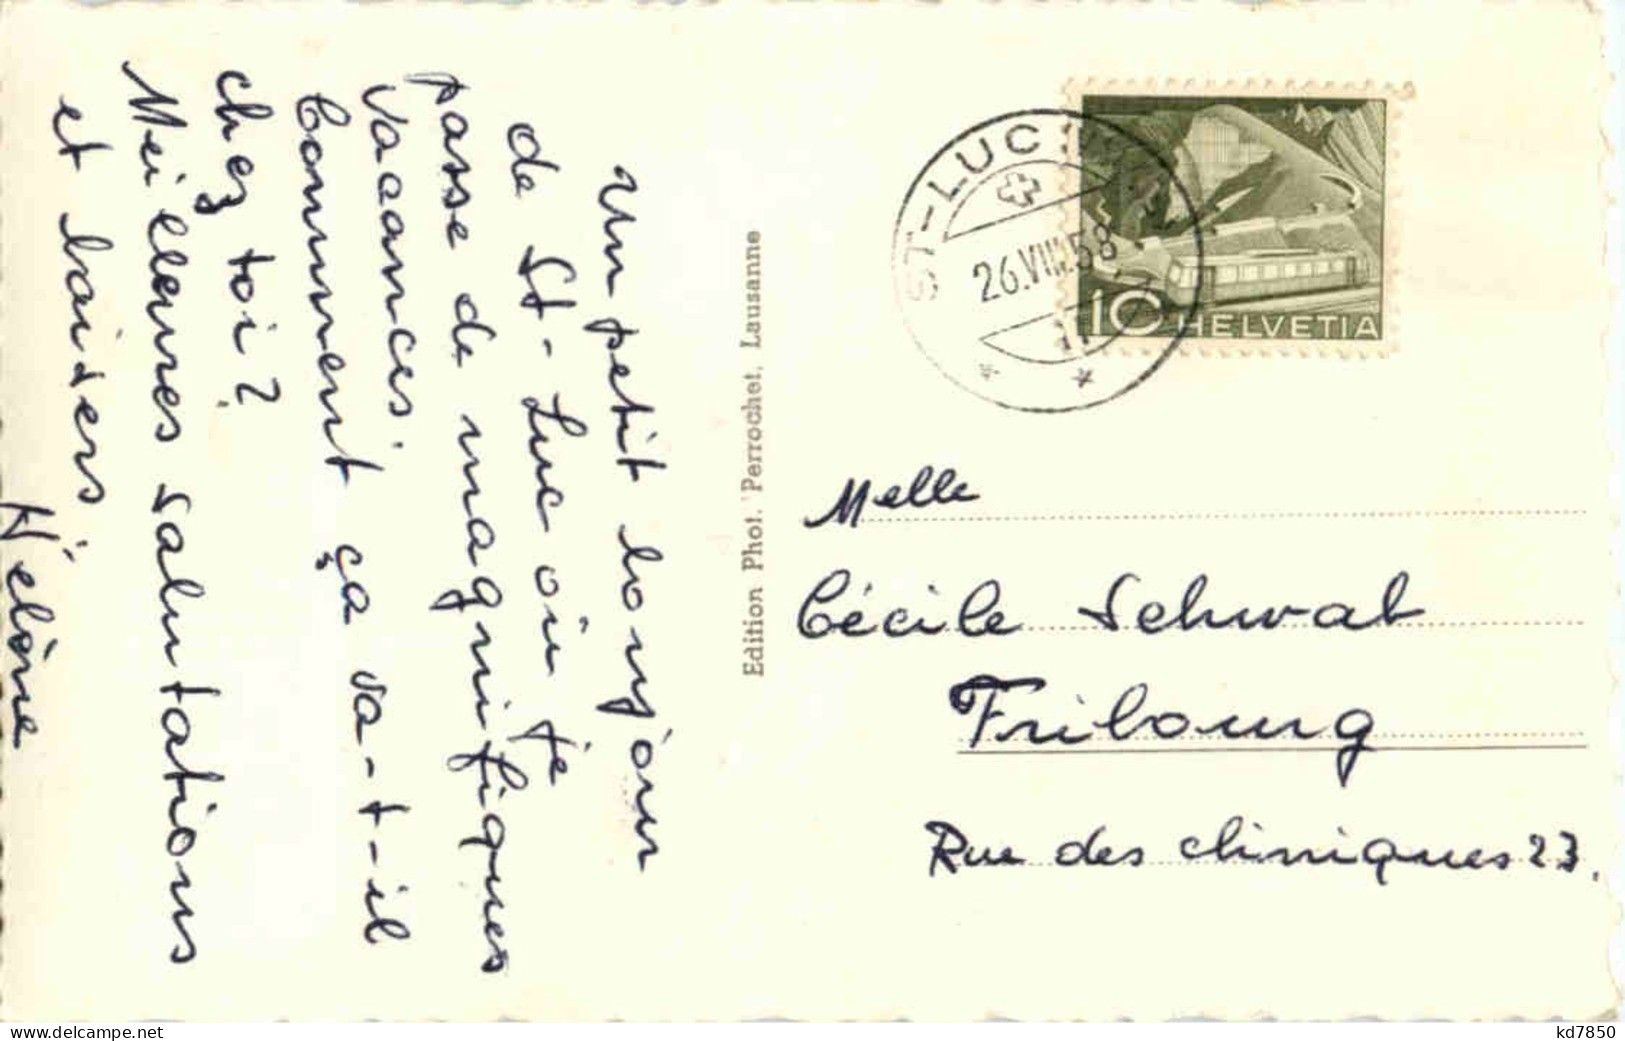 Un petit bonjour
de St-Luc où je
passe de magnifiques
vacances.
Comment ça va-t-il
chez toi?
Meilleures salutations
et baisers.
Hélène
Edition Phot. Perrochet, Lausanne
ST-LUC
26.VIII.58
10 HELVETIA
Melle
Cécile Schwab
Fribourg
Rue des cliniques 23.
www.delcampe.net
kd7850